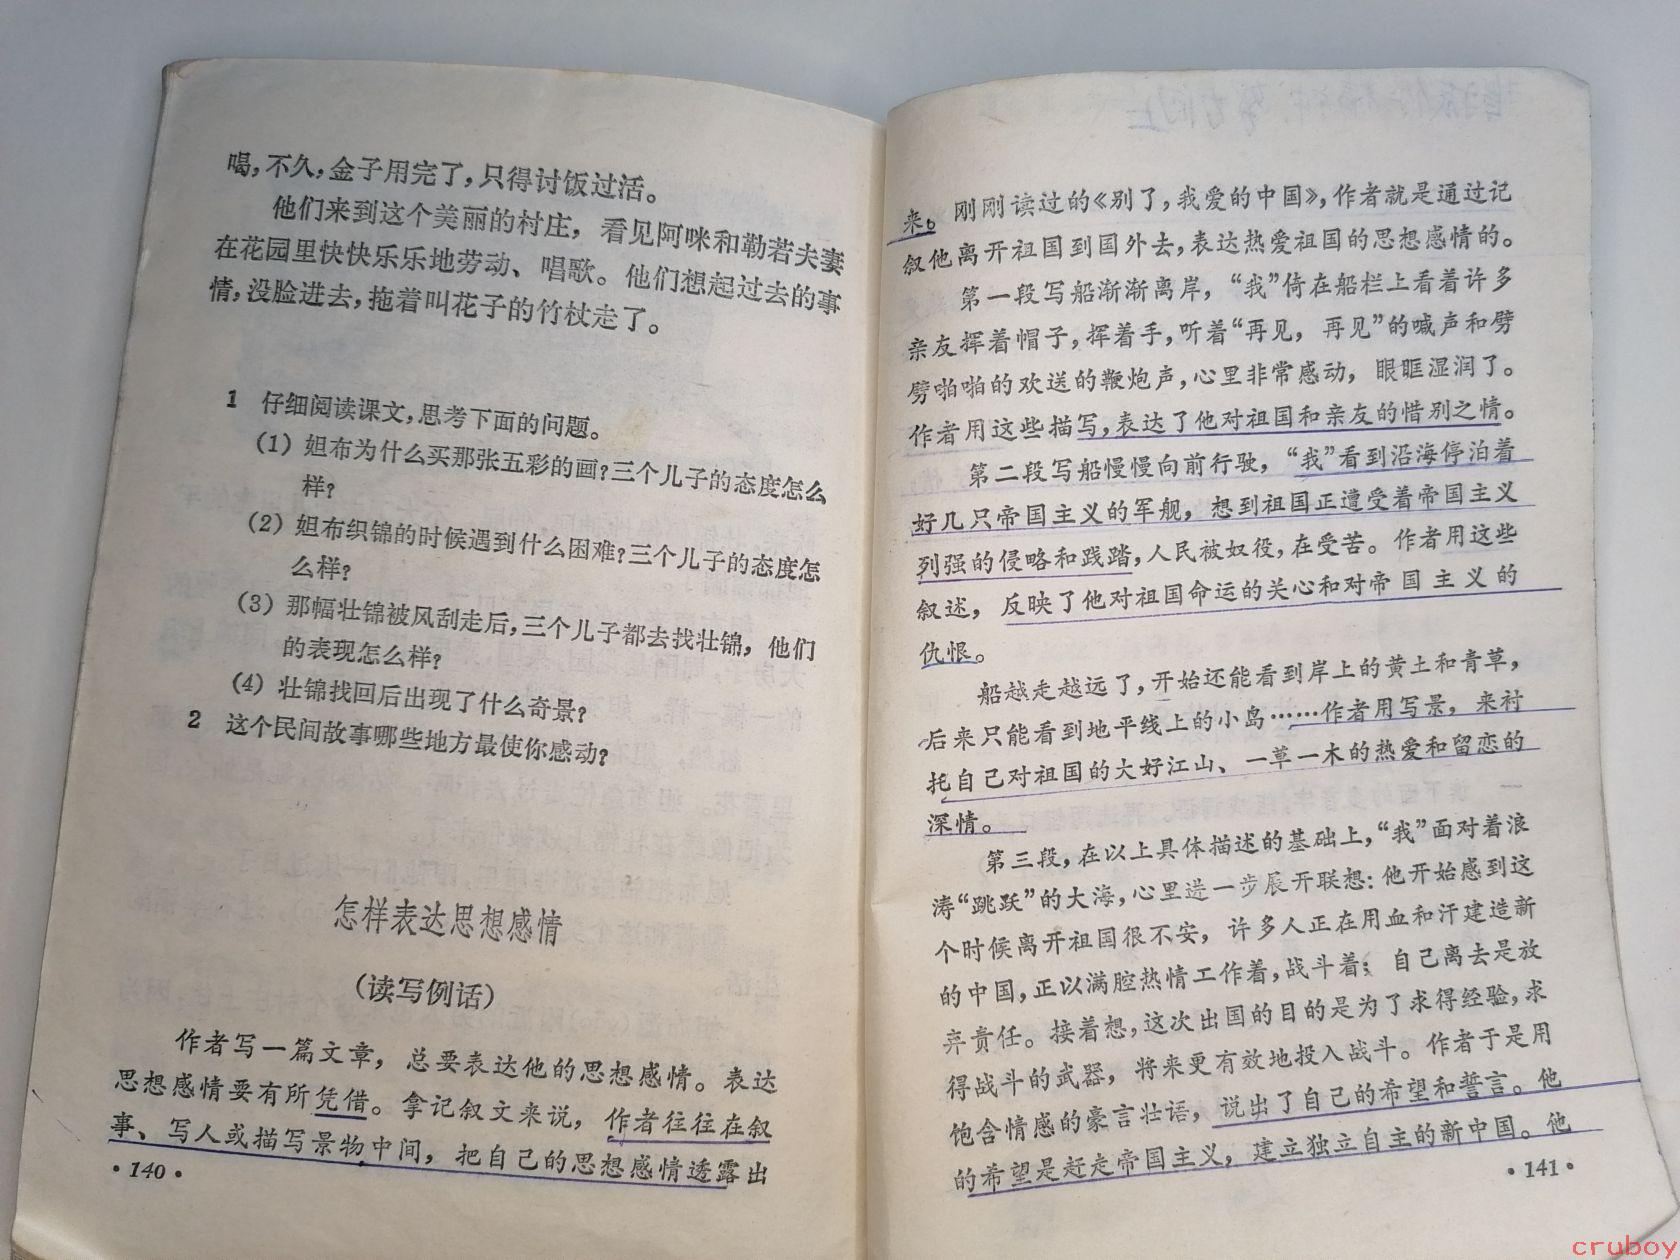 喝，不久，金子用完了，只得讨饭过活。
他们来到这个美丽的村庄，看见阿咪和勒若夫妻
在花园里快快乐乐地劳动、唱歌。他们想起过去的事
情，没脸进去，拖着叫花子的竹杖走了。
1 仔细阅读课文，思考下面的问题。
（1）妲布为什么买那张五彩的画？三个儿子的态度怎么
样？
（2）妲布织锦的时候遇到什么困难？三个儿子的态度怎
么样？
（3）那幅壮锦被风刮走后，三个儿子都去找壮锦，他们
的表现怎么样？
（4）壮锦找回后出现了什么奇景？
2 这个民间故事哪些地方最使你感动？
怎样表达思想感情
（读写例话）
作者写一篇文章，总要表达他的思想感情。表达
思想感情要有所凭借。拿记叙文来说，作者往往在叙
事、写人或描写景物中间，把自己的思想感情透露出
·140·
来。刚刚读过的《别了，我爱的中国》，作者就是通过记
叙他离开祖国到国外去，表达热爱祖国的思想感情的。
第一段写船渐渐离岸，“我”倚在船栏上看着许多
亲友挥着帽子，挥着手，听着“再见，再见”的喊声和劈
劈啪啪的欢送的鞭炮声，心里非常感动，眼眶湿润了。
作者用这些描写，表达了他对祖国和亲友的惜别之情。
第二段写船慢慢向前行驶，“我”看到沿海停泊着
好几只帝国主义的军舰，想到祖国正遭受着帝国主义
列强的侵略和践踏，人民被奴役，在受苦。作者用这些
叙述，反映了他对祖国命运的关心和对帝国主义的
仇恨。
船越走越远了，开始还能看到岸上的黄土和青草，
后来只能看到地平线上的小岛……作者用写景，来衬
托自己对祖国的大好江山、一草一木的热爱和留恋的
深情。
第三段，在以上具体描述的基础上，“我”面对着浪
涛“跳跃”的大海，心里进一步展开联想：他开始感到这
个时候离开祖国很不安，许多人正在用血和汗建造新
的中国，正以满腔热情工作着，战斗着；自己离去是放
弃责任。接着想，这次出国的目的是为了求得经验，求
得战斗的武器，将来更有效地投入战斗。作者于是用
饱含情感的豪言壮语，说出了自己的希望和誓言。他
的希望是赶走帝国主义，建立独立自主的新中国。他
·141·
cruboy